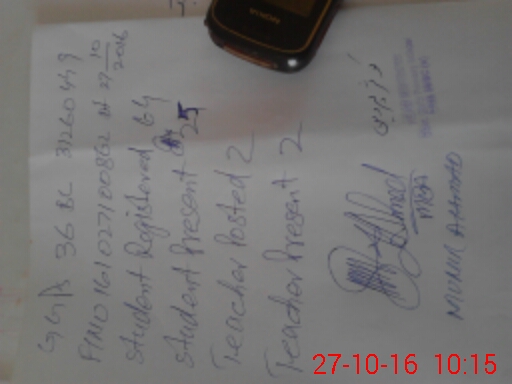 GGPS 36 BC 31260449
PIN 0161027100862 dt 27/10/2016
Student Registered 64
Student Present 25
Teacher Posted 2
Teacher Present 2
MUNIR AHMAD
NOKIA
27-10-16 10:15